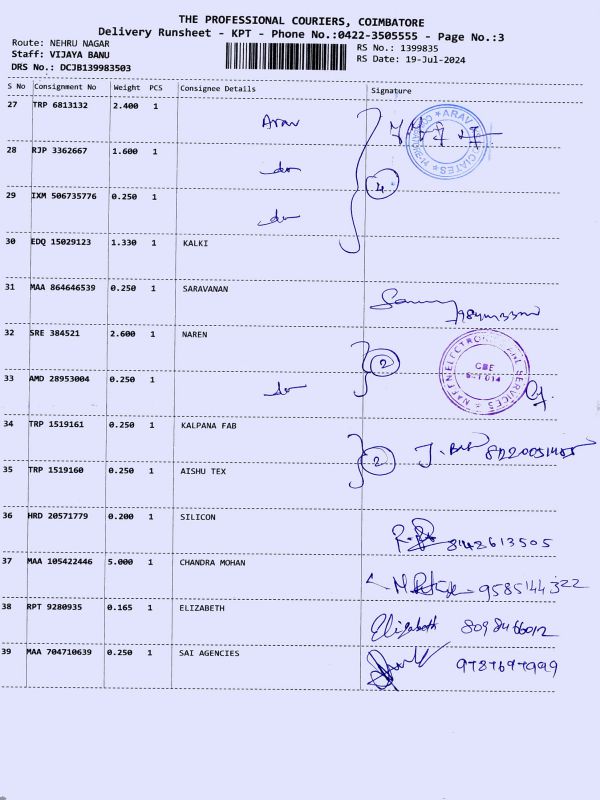 THE PROFESSIONAL COURIERS, COIMBATORE
Delivery Runsheet - KPT - Phone No.:0422-3505555 - Page No.:3
Route: NEHRU NAGAR
RS No.: 1399835
Staff: VIJAYA BANU
RS Date: 19-Jul-2024
DRS No.: DCJB139983503
S No Consignment No Weight PCS Consignee Details Signature
27 TRP 6813132 2.400 1 Arav
28 RJP 3362667 1.600 1 do
29 IXM 506735776 0.250 1 do
4
30 EDQ 15029123 1.330 1 KALKI
31 MAA 864646539 0.250 1 SARAVANAN
32 SRE 384521 2.600 1 NAREN
2
33 AMD 28953004 0.250 1 do
34 TRP 1519161 0.250 1 KALPANA FAB
2
35 TRP 1519160 0.250 1 AISHU TEX
36 HRD 20571779 0.200 1 SILICON
8442613505
37 MAA 105422446 5.000 1 CHANDRA MOHAN
9585144322
38 RPT 9280935 0.165 1 ELIZABETH Elizabeth
39 MAA 704710639 0.250 1 SAI AGENCIES
9787697999